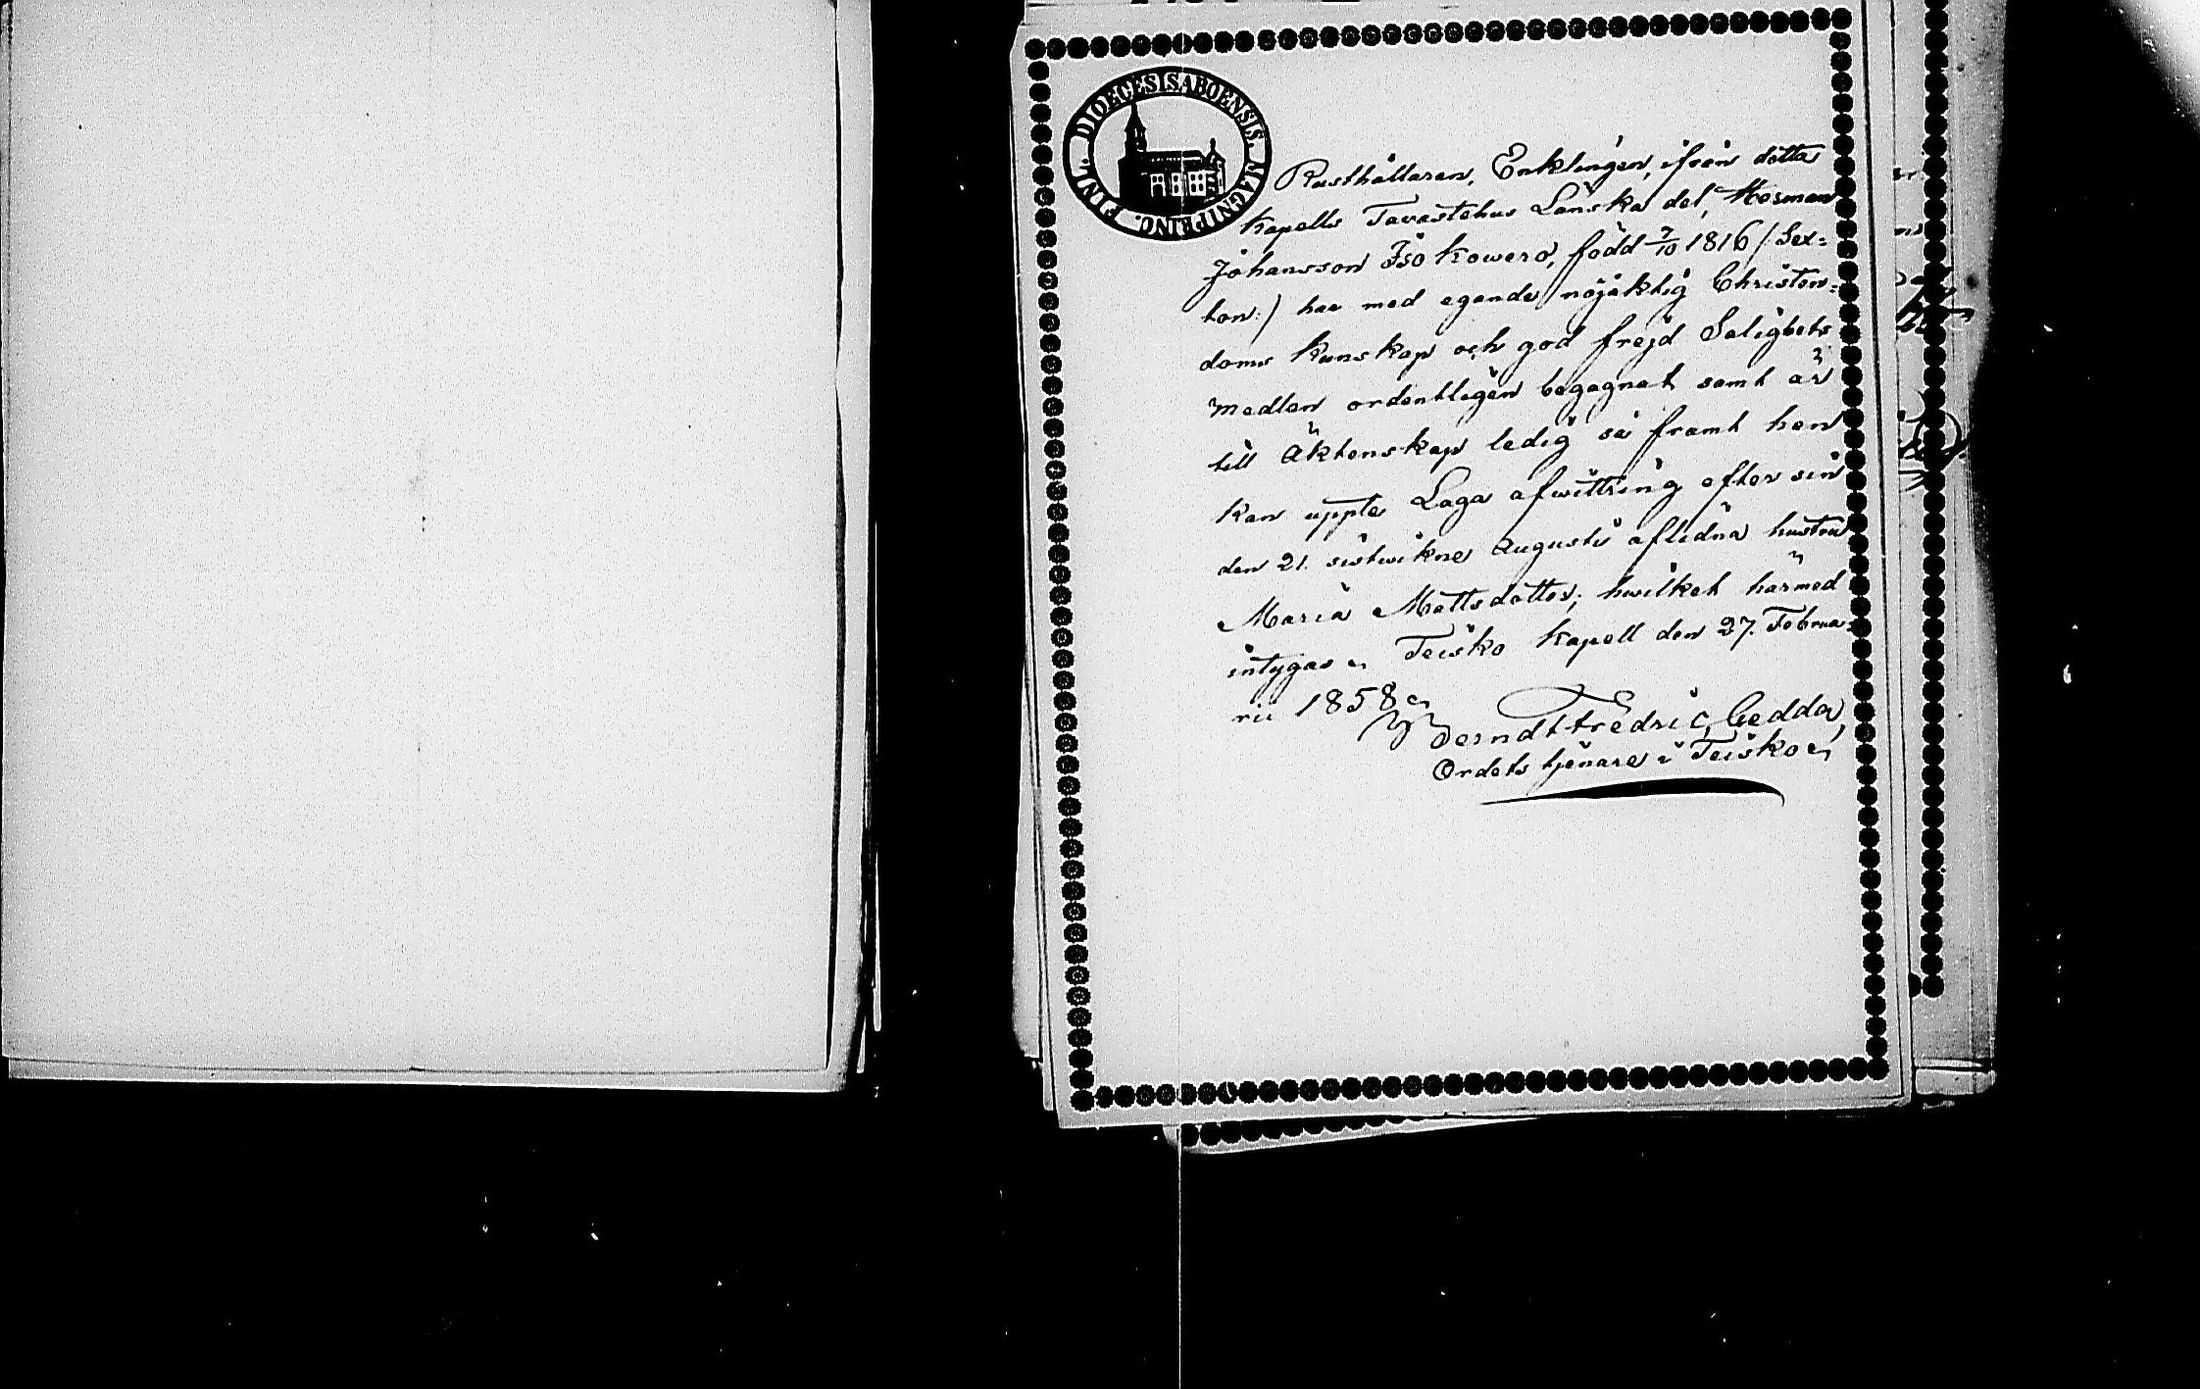 DIOECESIS ABOENSIS. MAGNI PRINC. FINL.
Rusthållaren, Enklingen, ifrån detta
Kapells Tavastehus Länska del, Herman
Johansson Iso Kowero, född 7/10 1816 /: Sex-
ton:/ har med egande nöjaktig Christen-
doms kunskap och god frejd Salighets
medlen ordentligen begagnat samt är
till Äktenskap ledig så framt han
kan uppte Laga afwittring efter sin
den 21. sistwikne Augusti aflidna hustru
Maria Mattsdotter; hwilket härmed
intygas. Teisko Kapell den 27. Februa-
rii 1858.
Berndt Fredric Gedda,
Ordets tjenare i Teisko